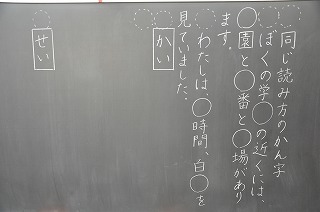 同じ読み方のかん字
ぼくの学◯の近くには、
◯園と◯番と◯場があり
ます。
わたしは、◯時間、白◯を
見ていました。
かい
せい